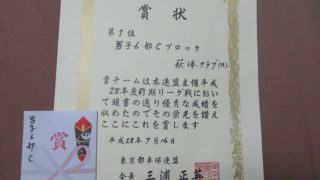 賞状
第1位
男子6部Cブロック
萩クラブ(A)
貴チームは本連盟主催平成
28年度前期リーグ戦におい
て頭書の通り優秀な成績を
収めたのでその栄光を讃え
ここにこれを賞します
平成28年7月16日
東京都卓球連盟
会長 三浦正英
男子6部C
賞